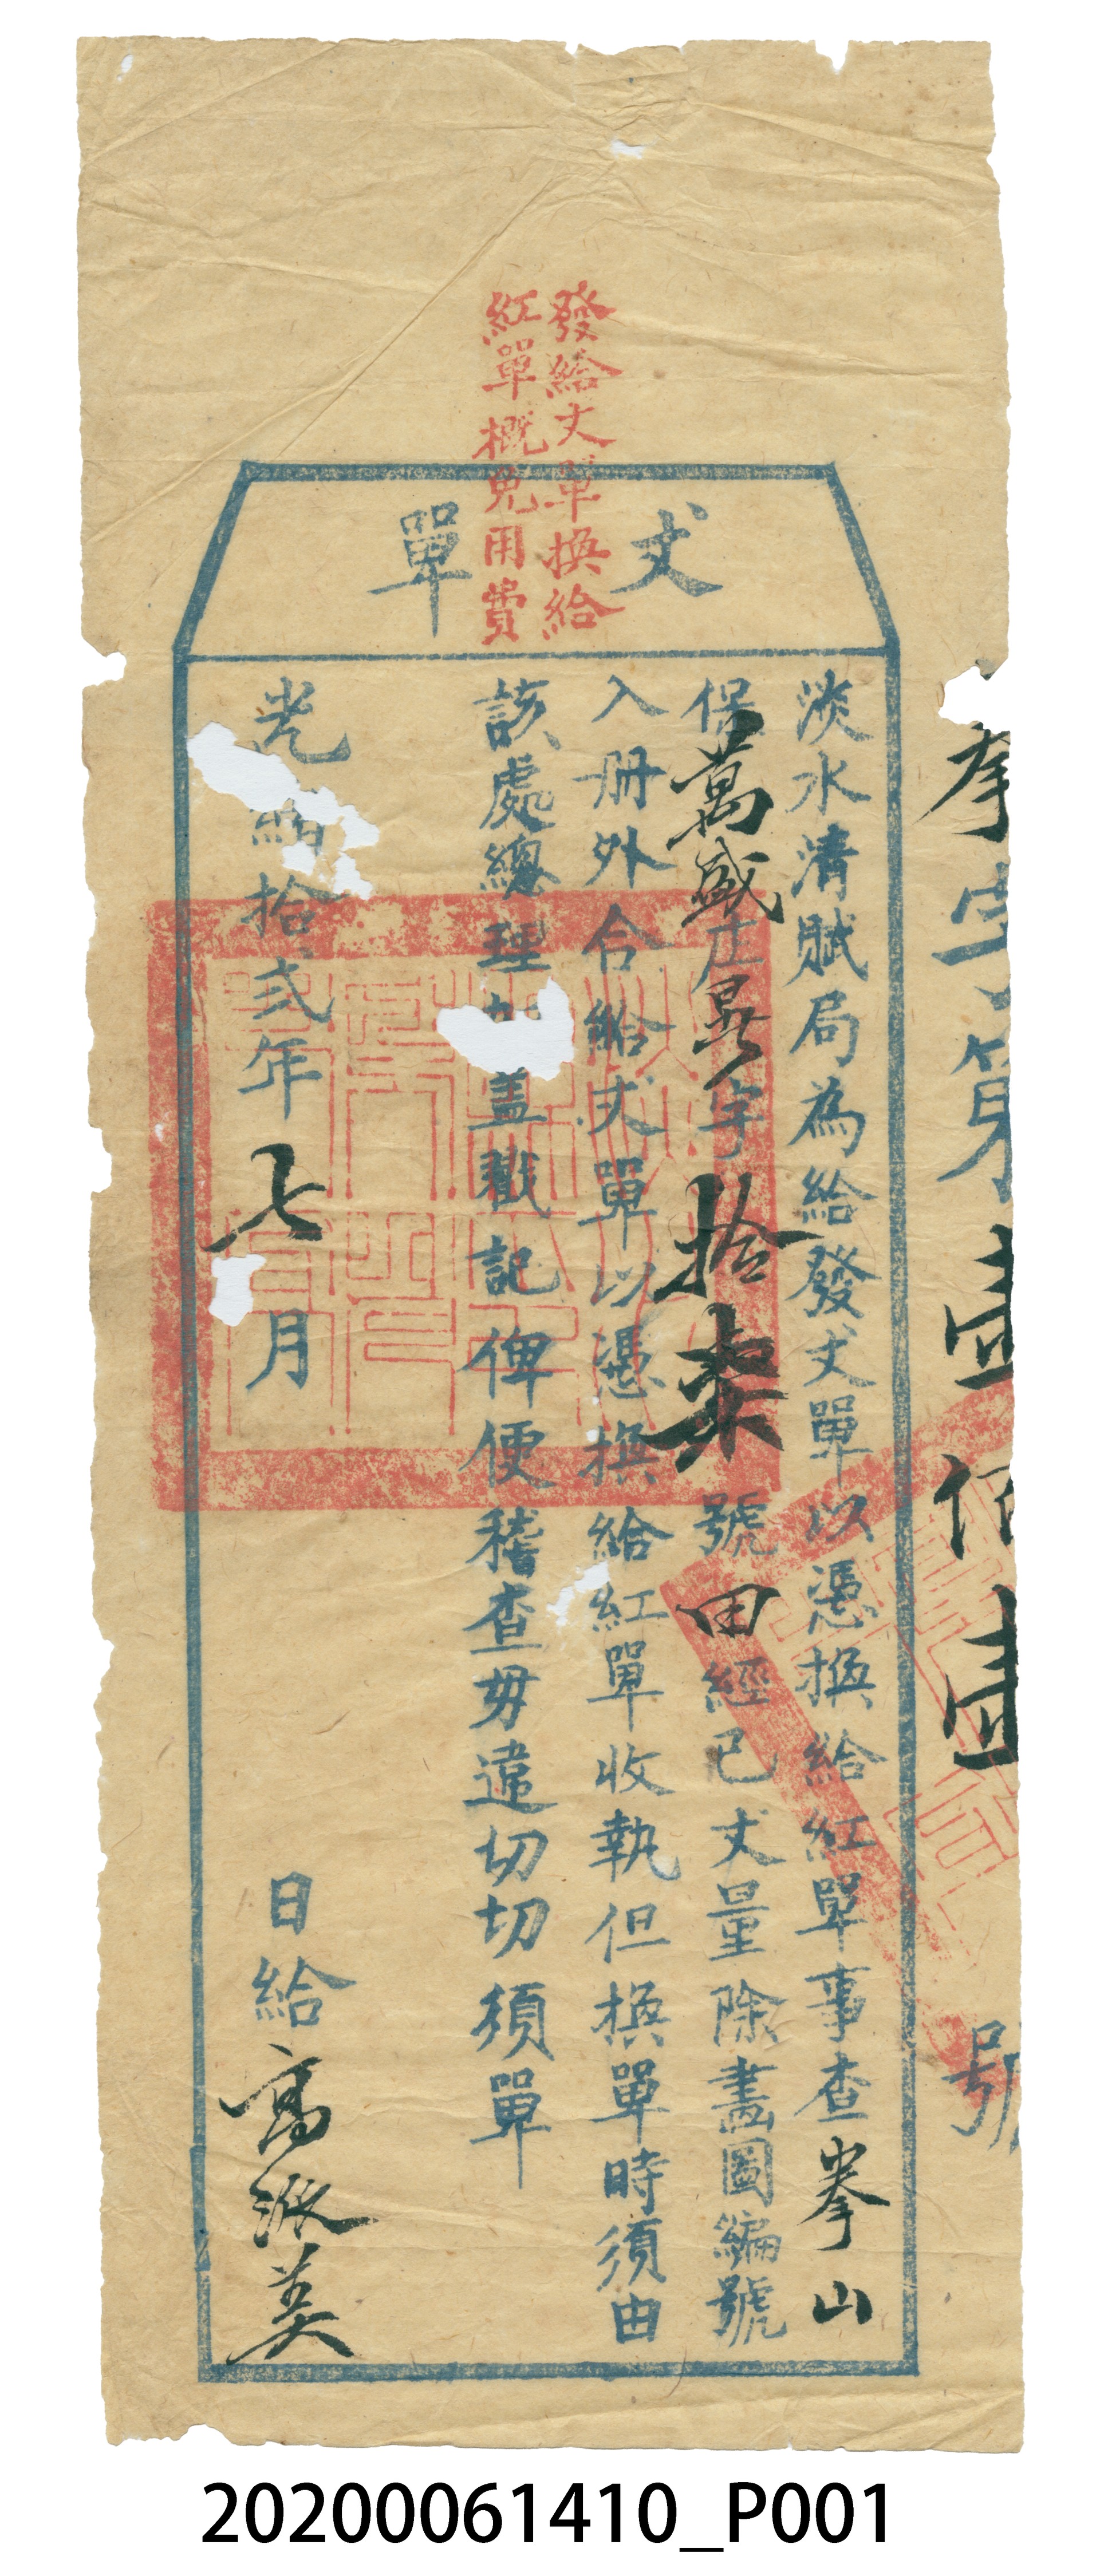 發給丈單換給
紅單概免用費
丈單
拳字第壹佰壹號
淡水清賦局為給發丈單以憑換給紅單事查拳山
保萬盛庄晁字拾柒號田經已丈量除畫圖編號
入册外合給丈單以憑換給紅單收執但換單時須由
該處總理加盖戳記俾便稽查毋違切切須單
光緒拾弍年七月日給高派英
20200061410_P001